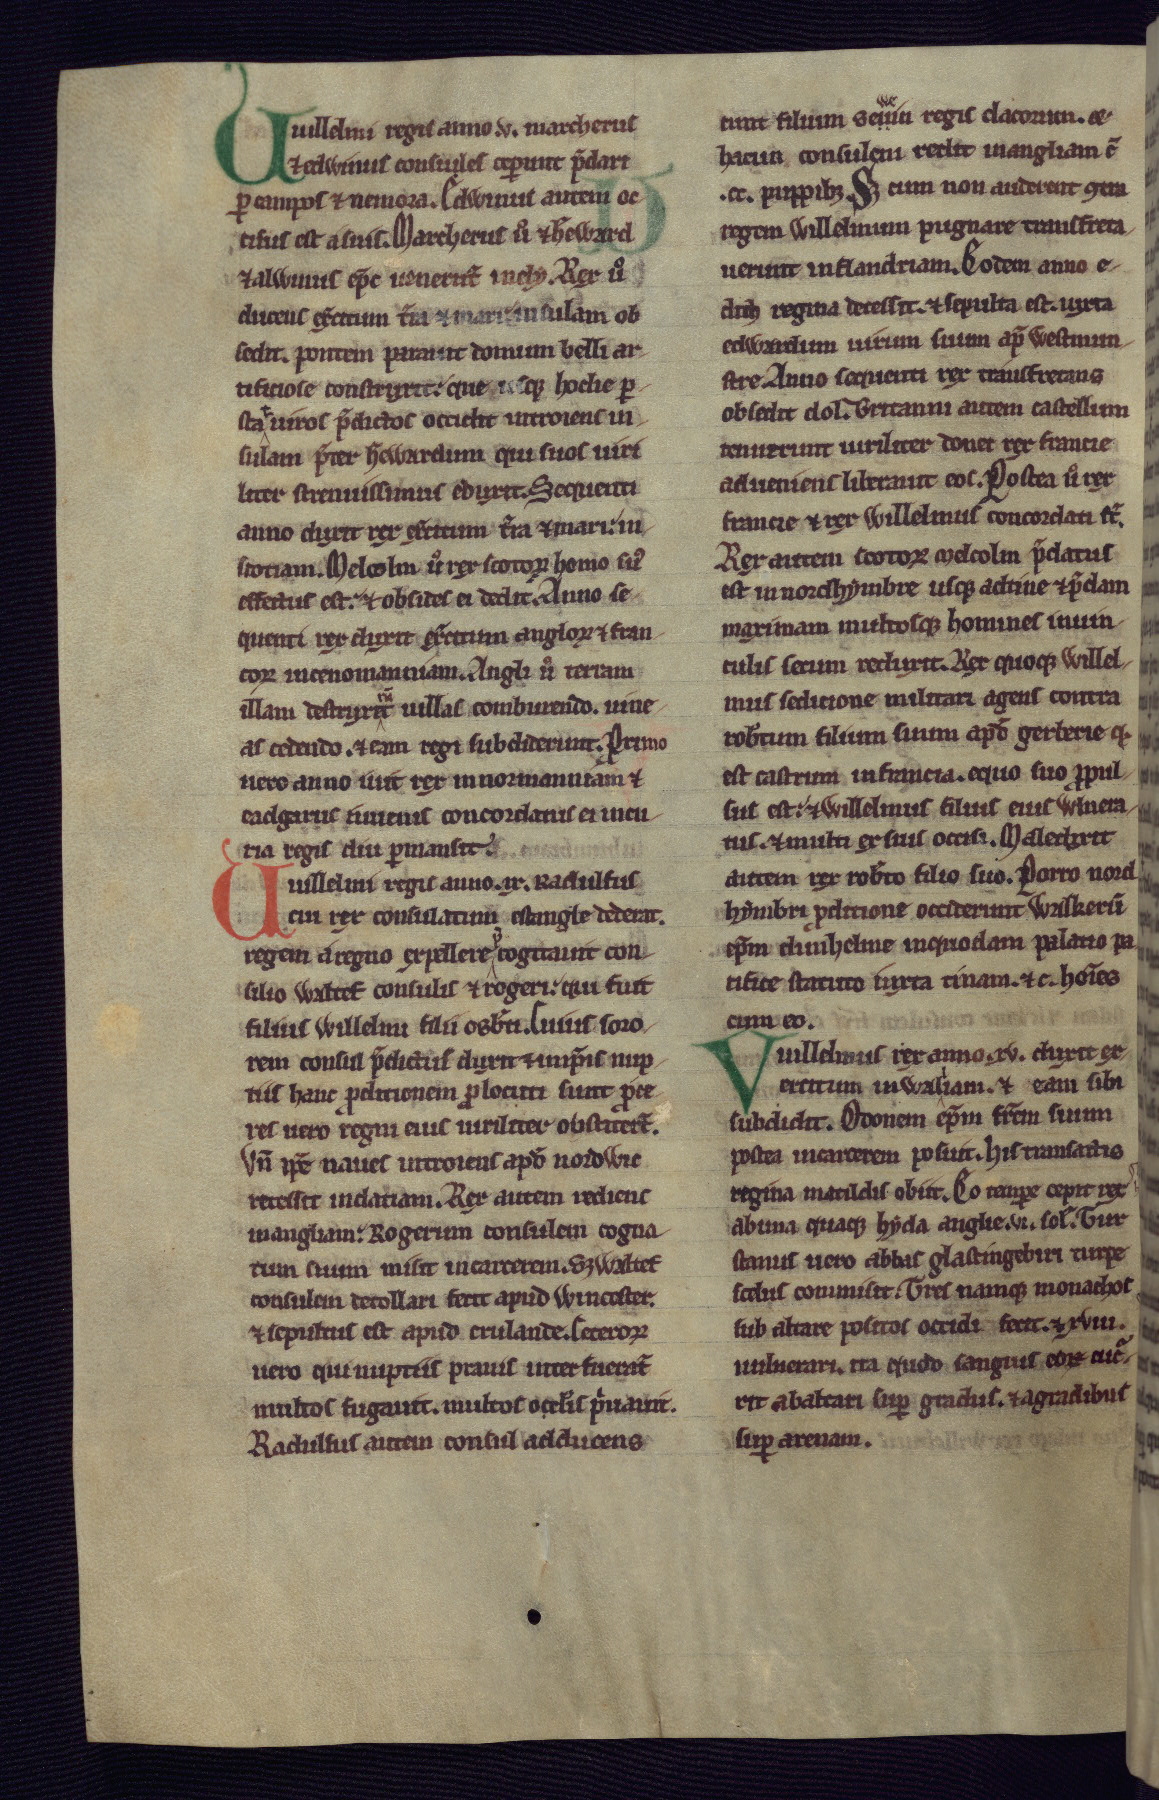 Uuillelmi regis anno .v. marcherus
⁊ edwinus consules ceperunt p̄dari
ꝑ campos ⁊ nemora. Edwinus autem oc
cisus est a suis. Marcherus ů ⁊ heward
⁊ alwinus ep̄c uenerūt in ely. Rex ů
ducens ex̄citum t̄ra ⁊ mari insulam ob
sedit. pontem parauit domum belli ar-
tificiose construxit. que usqꝫ hodie ꝑ-
stat uiros p̄dictos occidit introiens in-
sulam p̄ter hewardum qui suos uiri
liter strenuissimus eduxit. Sequenti
anno duxit rex ex̄citum t̄ra ⁊ mari in-
scotiam. Melcolm ů rex scotoꝝ homo suꝰ
effectus est. ⁊ obsides ei dedit. Anno se-
quenti rex duxit ex̄citum angloꝝ ⁊ fran-
coꝝ in cenomanniam. Angli ů terram
illam destruxerūt uillas comburendo. uine-
as cedendo. ⁊ eam regi subdiderunt. Primo
uero anno iuit rex in normanniam ⁊
eadgarus iuuenis concordatus ei in cu-
ria regis diu ꝑmansit.
Uuillelmi regis anno .ix. Radulfus
cui rex consulatum estangle dederat.
regem a regno expellere cogitauit con-
silio waltef consulis ⁊ rogeri. qui fuit
filius willelmi filii osb̄ti. Cuius soro-
rem consul p̄dictus duxit ⁊ in ip̄is nup-
tiis hanc ꝓditionem ꝓlocuti sunt ꝓce-
res uero regni eius uiriliter obstiterūt.
Vn̄ ip̄e naues introiens apđ nordwic
recessit in daciam. Rex autem rediens
in angliam. Rogerum consulem cogna-
tum suum misit in carcerem. Sꝫ waltef
consulem decollari fecit apud wincester.
⁊ sepultus est apud crulande. Ceteroꝝ
uero qui nuptiis prauis interfuerāt
multos fugauit. multos oculis p̄uauit.
Radulfus autem consul adducens
cnut filium sweini regis dacorum. ⁊
hacun consulem rediit in angliam c̄
.cc. puppibꝫ. Sꝫ cum non auderent ꝯtra
regem willelmum pugnare transfreta-
uerunt in flandriam. Eodem anno e-
dith regina decessit. ⁊ sepulta est. iuxta
edwardum uirum suum ap̄ westmin-
stre. Anno sequenti rex transfretans
obsedit dol. Britanni autem castellum
tenuerunt uiriliter donec rex francie
adueniens liberauit eos. Postea ů rex
francie ⁊ rex willelmus concordati st̄.
Rex autem scotoꝝ melcolm p̄datus
est in nordhymbre usqꝫ ad tine ⁊ p̄dam
maximam multosqꝫ homines in uin-
culis secum reduxit. Rex quoqꝫ willel-
mus sedicione militari agens contra
rob̄tum filium suum apđ gerberie q̄
est castrum in francia. equo suo ꝓpul-
sus est. ⁊ willelmus filius eius wlnera-
tus. ⁊ multi ex suis occisi. Maledixit
autem rex rob̄to filio suo. Porro nord
hymbri ꝓditione occiderunt walkerū
ep̄m dunhelme in quodam palatio pa
cifice statuto iuxta tinam. ⁊ c. hoīes
cum eo.
Vuillelmus rex anno .xv. duxit ex-
ercitum in waliam. ⁊ eam sibi
subdidit. Odonem ep̄m fr̄em suum
postea in carcerem posuit. his transactis
regina matildis obiit. Eo tempe cepit rex
ab una quaqꝫ hyda anglie .vi. sol̄. Tur
stanus uero abbas glastingebiri turpe
scelus commisit. Tres namqꝫ monachos
sub altare positos occidi fecit. ⁊ xviii.
uulnerari. ita quđ sanguis eoꝝ cuc̄-
rit ab altari suꝑ gradus. ⁊ a gradibus
suꝑ arenam.